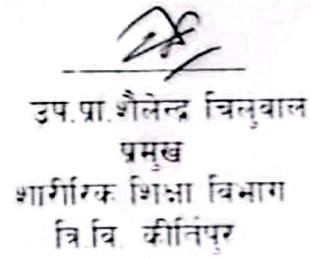 उप.प्रा.शैलेन्द्र चिलुवाल
प्रमुख
शारीरिक शिक्षा विभाग
त्रि.वि. कीर्तिपुर